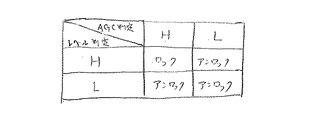 AGC判定 H L
レベル判定
H ロック アンロック
L アンロック アンロック